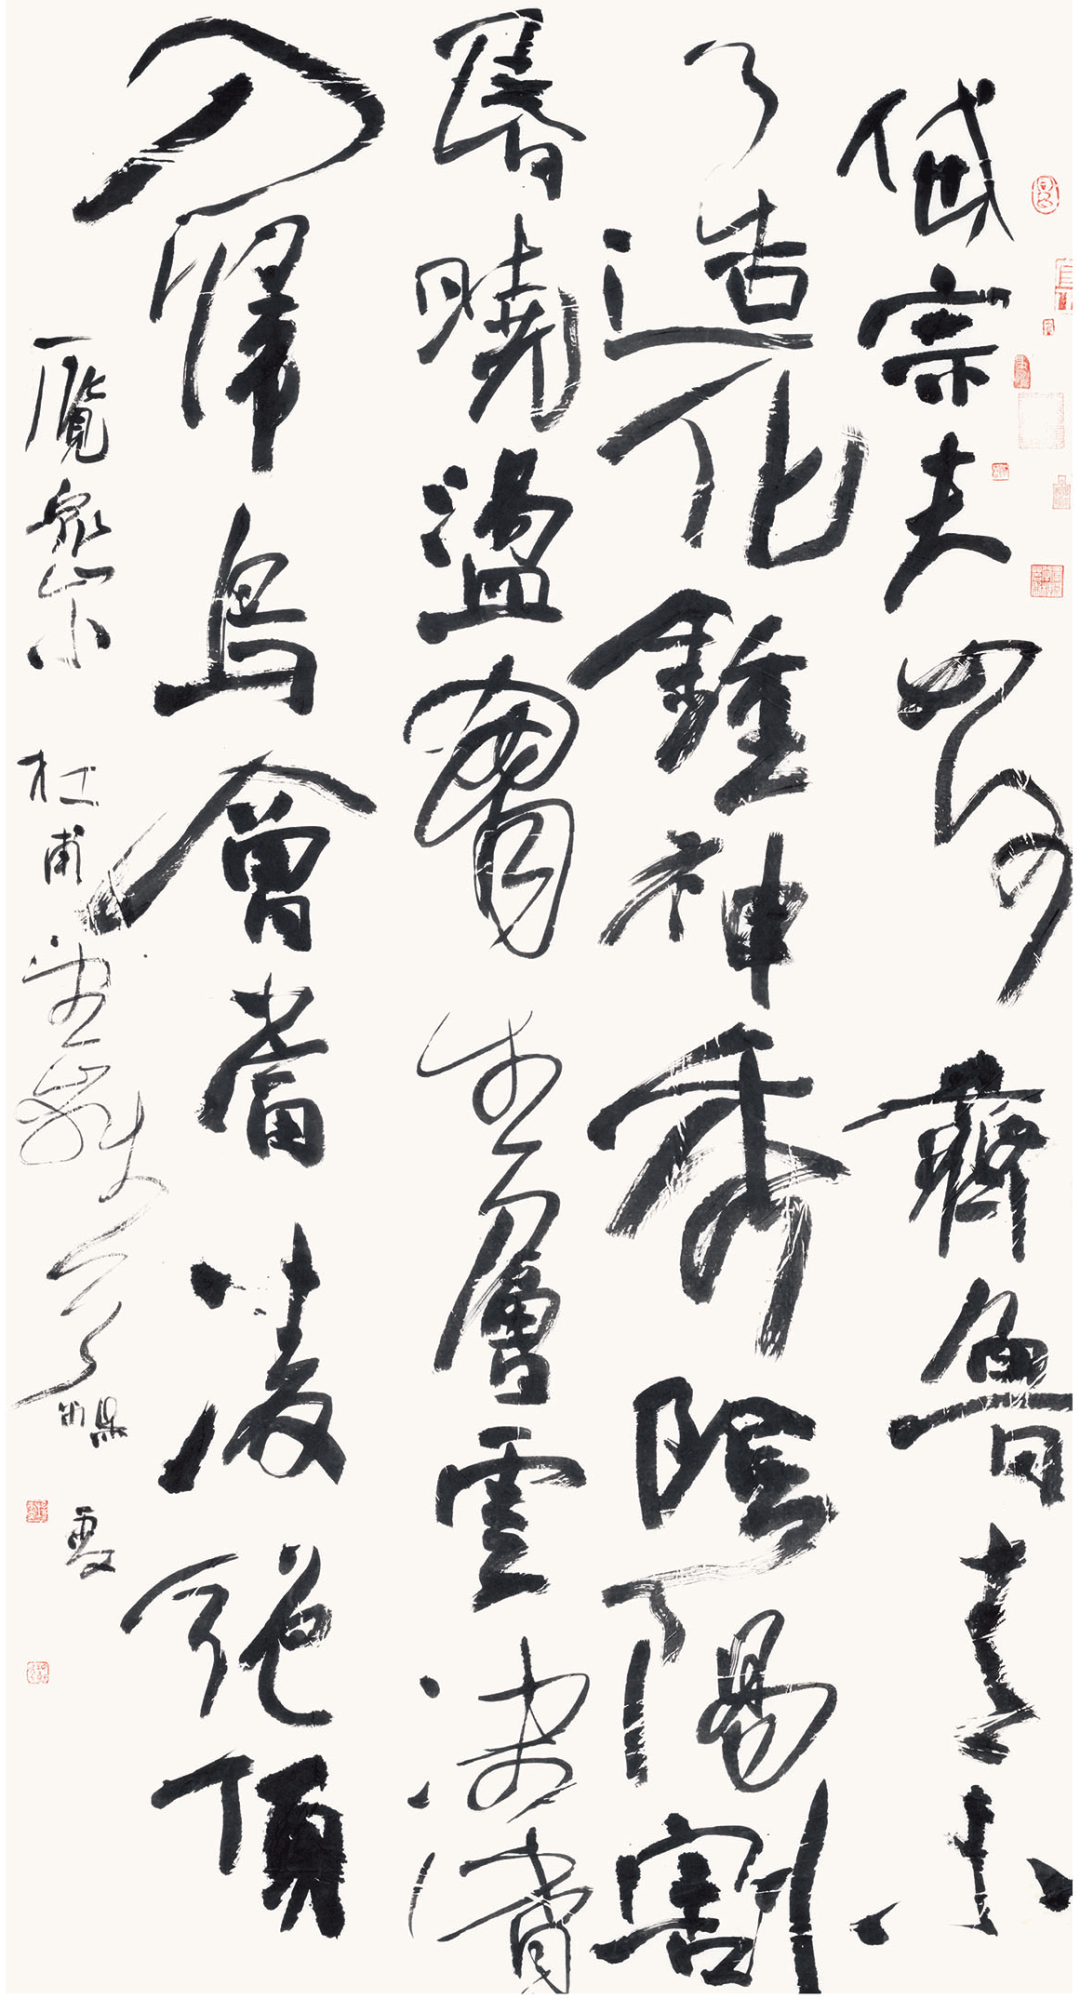 岱宗夫如何齊魯青未
了造化鍾神秀陰陽割
昏曉盪胸生層雲決眥
入歸鳥會當凌絕頂
一覽眾山小 杜甫望嶽